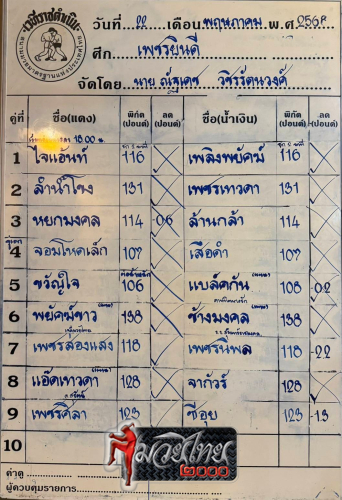 เวทีราชดำเนิน
สนามมวยมาตรฐานแห่งประเทศไทย
วันที่ 22 เดือน พฤษภาคม พ.ศ. 2568
ศึก เพชรยินดี
จัดโดย นาย ณัฐเดช วชิรรัตนวงศ์
คู่ที่ ชื่อ(แดง) พิกัด (ปอนด์) ลด (ปอนด์) ชื่อ(น้ำเงิน) พิกัด (ปอนด์) ลด (ปอนด์)
18.00 น.
1 ใจแอ้นท์ 116 เพลิงพยัคฆ์ 116
2 ลำน้ำโขง 131 เพชรเทวดา 131
3 หยกมงคล 114 0.6 ล้านกล้า 114
คู่เอก
4 จอมโหดเล็ก 107 เสือดำ 107
5 ขวัญใจ 106 แบล็คกัน 108 -0.2
6 พยัคฆ์ขาว 138 ช้างมงคล 138
7 เพชรส่องแสง 118 เพชรนิพล 118 -2.2
8 แอ๊ดเทวดา 128 จากัวร์ 128
9 เพชรศิลา 123 ซีอุย 123 -1.3
10
คำดู
ผู้ควบคุมรายการ
มวยไทย
๒๐๐๐